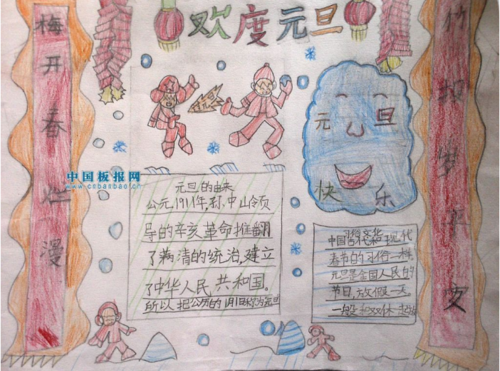 欢度元旦
梅开春烂漫
竹报岁平安
中国板报网
元旦
快乐
元旦的由来
公元1911年,孙中山领
导的辛亥革命推翻
了满清的统治,建立
了中华人民共和国.
所以把公历的1月1日
中国 现代
春节的习俗一样
元旦是全国人民的
节日,放假一天.
一般 双休一起